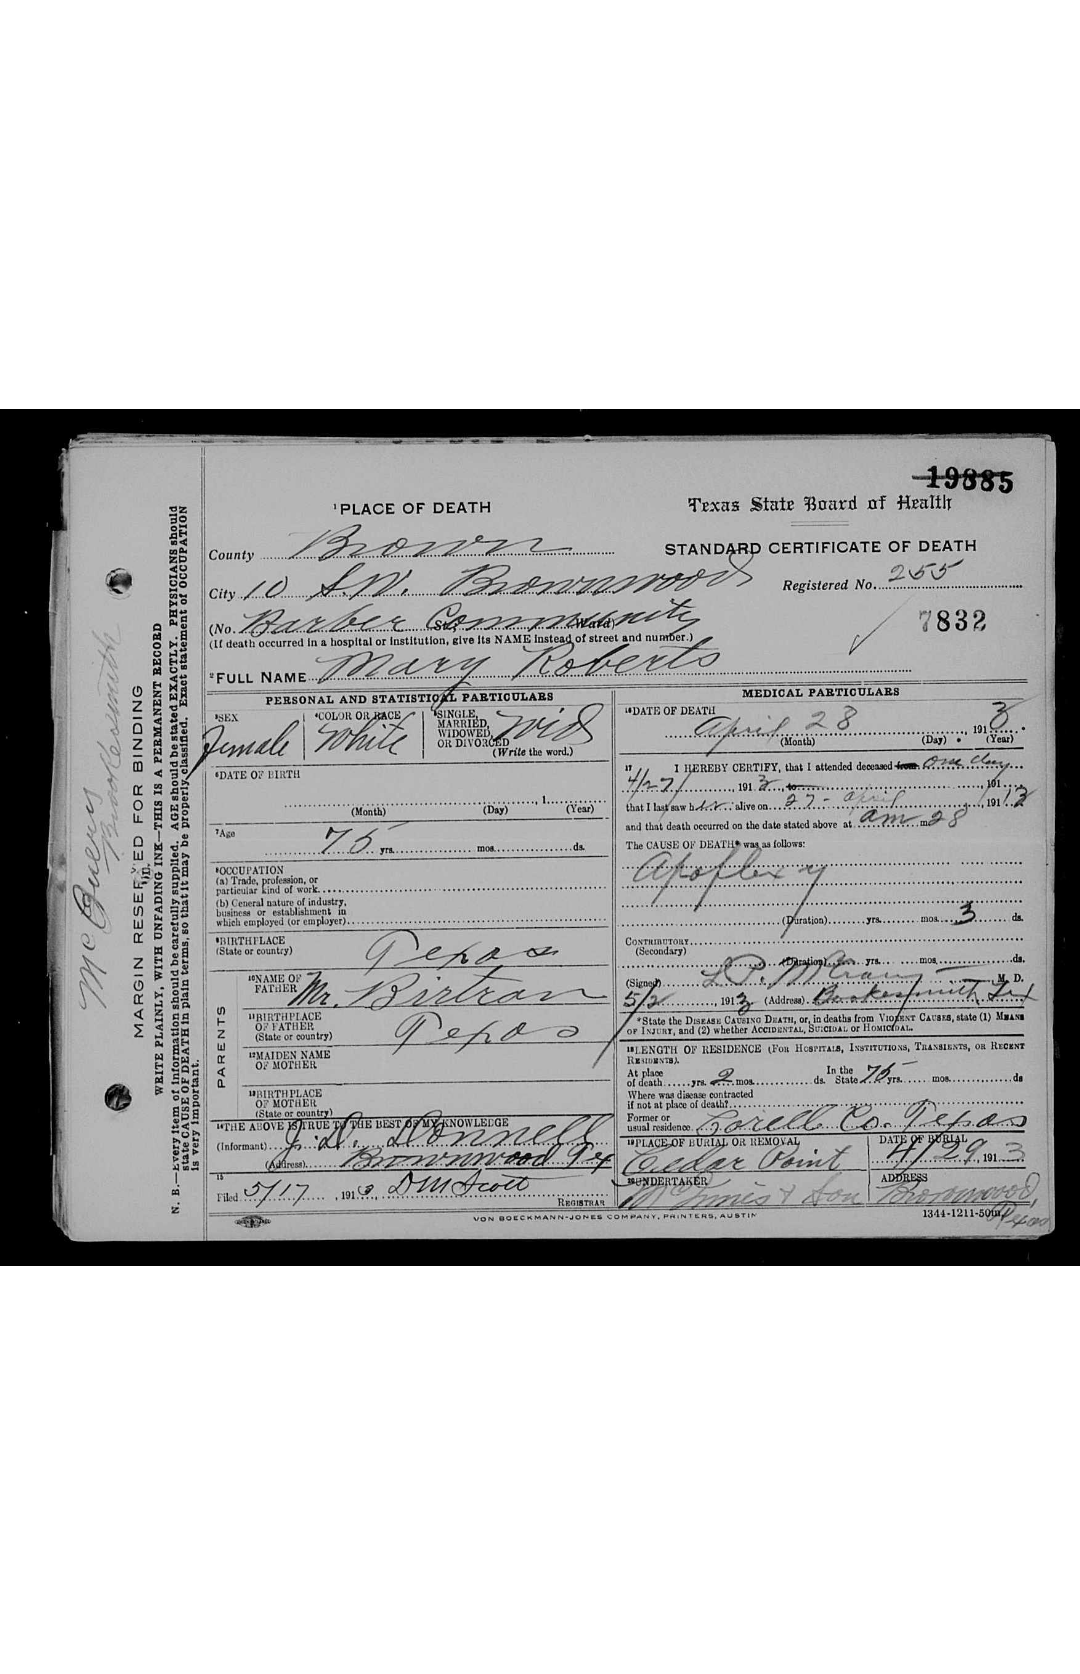 19885
¹PLACE OF DEATH
Texas State Board of Health
County Brown
STANDARD CERTIFICATE OF DEATH
City 10 S.W. Brownwood
Registered No. 255
(No. Barber Community St. Ward)
7832
(If death occurred in a hospital or institution, give its NAME instead of street and number.)
²FULL NAME Mary Roberts
PERSONAL AND STATISTICAL PARTICULARS
³SEX Female
⁴COLOR OR RACE White
⁵SINGLE, MARRIED, WIDOWED, OR DIVORCED Wid
(Write the word.)
⁶DATE OF BIRTH
, 1
(Month) (Day) (Year)
⁷Age
75 yrs. mos. ds.
⁸OCCUPATION
(a) Trade, profession, or
particular kind of work
(b) General nature of industry,
business or establishment in
which employed (or employer)
⁹BIRTHPLACE
(State or country) Texas
PARENTS
¹⁰NAME OF
FATHER Mr. Birtran
¹¹BIRTHPLACE
OF FATHER
(State or country) Texas
¹²MAIDEN NAME
OF MOTHER
¹³BIRTHPLACE
OF MOTHER
(State or country)
¹⁴THE ABOVE IS TRUE TO THE BEST OF MY KNOWLEDGE
(Informant) J. D. Donnell
(Address) Brownwood Tex
¹⁵
Filed 5/17, 1913 D M Scott
REGISTRAR
MEDICAL PARTICULARS
¹⁶DATE OF DEATH
April 28, 1913
(Month) (Day) (Year)
¹⁷ I HEREBY CERTIFY, that I attended deceased from one day
4/27, 1913, to 191
that I last saw her alive on 27 - april, 1913
and that death occurred on the date stated above at am m 28
The CAUSE OF DEATH* was as follows:
Apoplexy
(Duration) yrs. mos. 3 ds.
CONTRIBUTORY
(Secondary)
(Duration) yrs. mos. ds.
(Signed) M. D.
5/2, 1913 (Address) Brookesmith, Tex
*State the DISEASE CAUSING DEATH, or, in deaths from VIOLENT CAUSES, state (1) MEANS
OF INJURY, and (2) whether ACCIDENTAL, SUICIDAL or HOMICIDAL.
¹⁸LENGTH OF RESIDENCE (FOR HOSPITALS, INSTITUTIONS, TRANSIENTS, OR RECENT
RESIDENTS).
At place
of death yrs. 2 mos. ds. In the State 75 yrs. mos. ds
Where was disease contracted
if not at place of death?
Former or
usual residence Co. Texas
¹⁹PLACE OF BURIAL OR REMOVAL
Cedar Point
DATE OF BURIAL
4/29, 1913
²⁰UNDERTAKER
& Son
ADDRESS
Brownwood, Texas
VON BOECKMANN-JONES COMPANY, PRINTERS, AUSTIN
1344-1211-50m
Brookesmith
MARGIN RESERVED FOR BINDING
WRITE PLAINLY, WITH UNFADING INK—THIS IS A PERMANENT RECORD
N. B.—Every item of information should be carefully supplied. AGE should be stated EXACTLY. PHYSICIANS should
state CAUSE OF DEATH in plain terms, so that it may be properly classified. Exact statement of OCCUPATION
is very important.